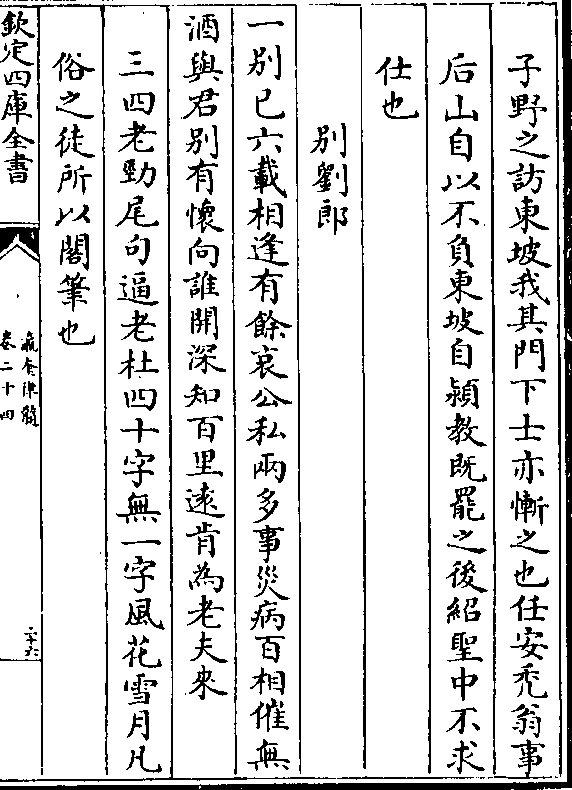 子野之訪東坡我其門下士亦慚之也任安禿翁事
后山自以不負東坡自潁教既罷之後紹聖中不求
仕也
別劉郎
一別已六載相逢有餘哀公私兩多事災病百相催無
酒與君別有懷向誰開深知百里遠肯為老夫來
三四老勁尾句逼老杜四十字無一字風花雪月凡
俗之徒所以閣筆也
欽定四庫全書
瀛奎律髓
卷二十四
二十六